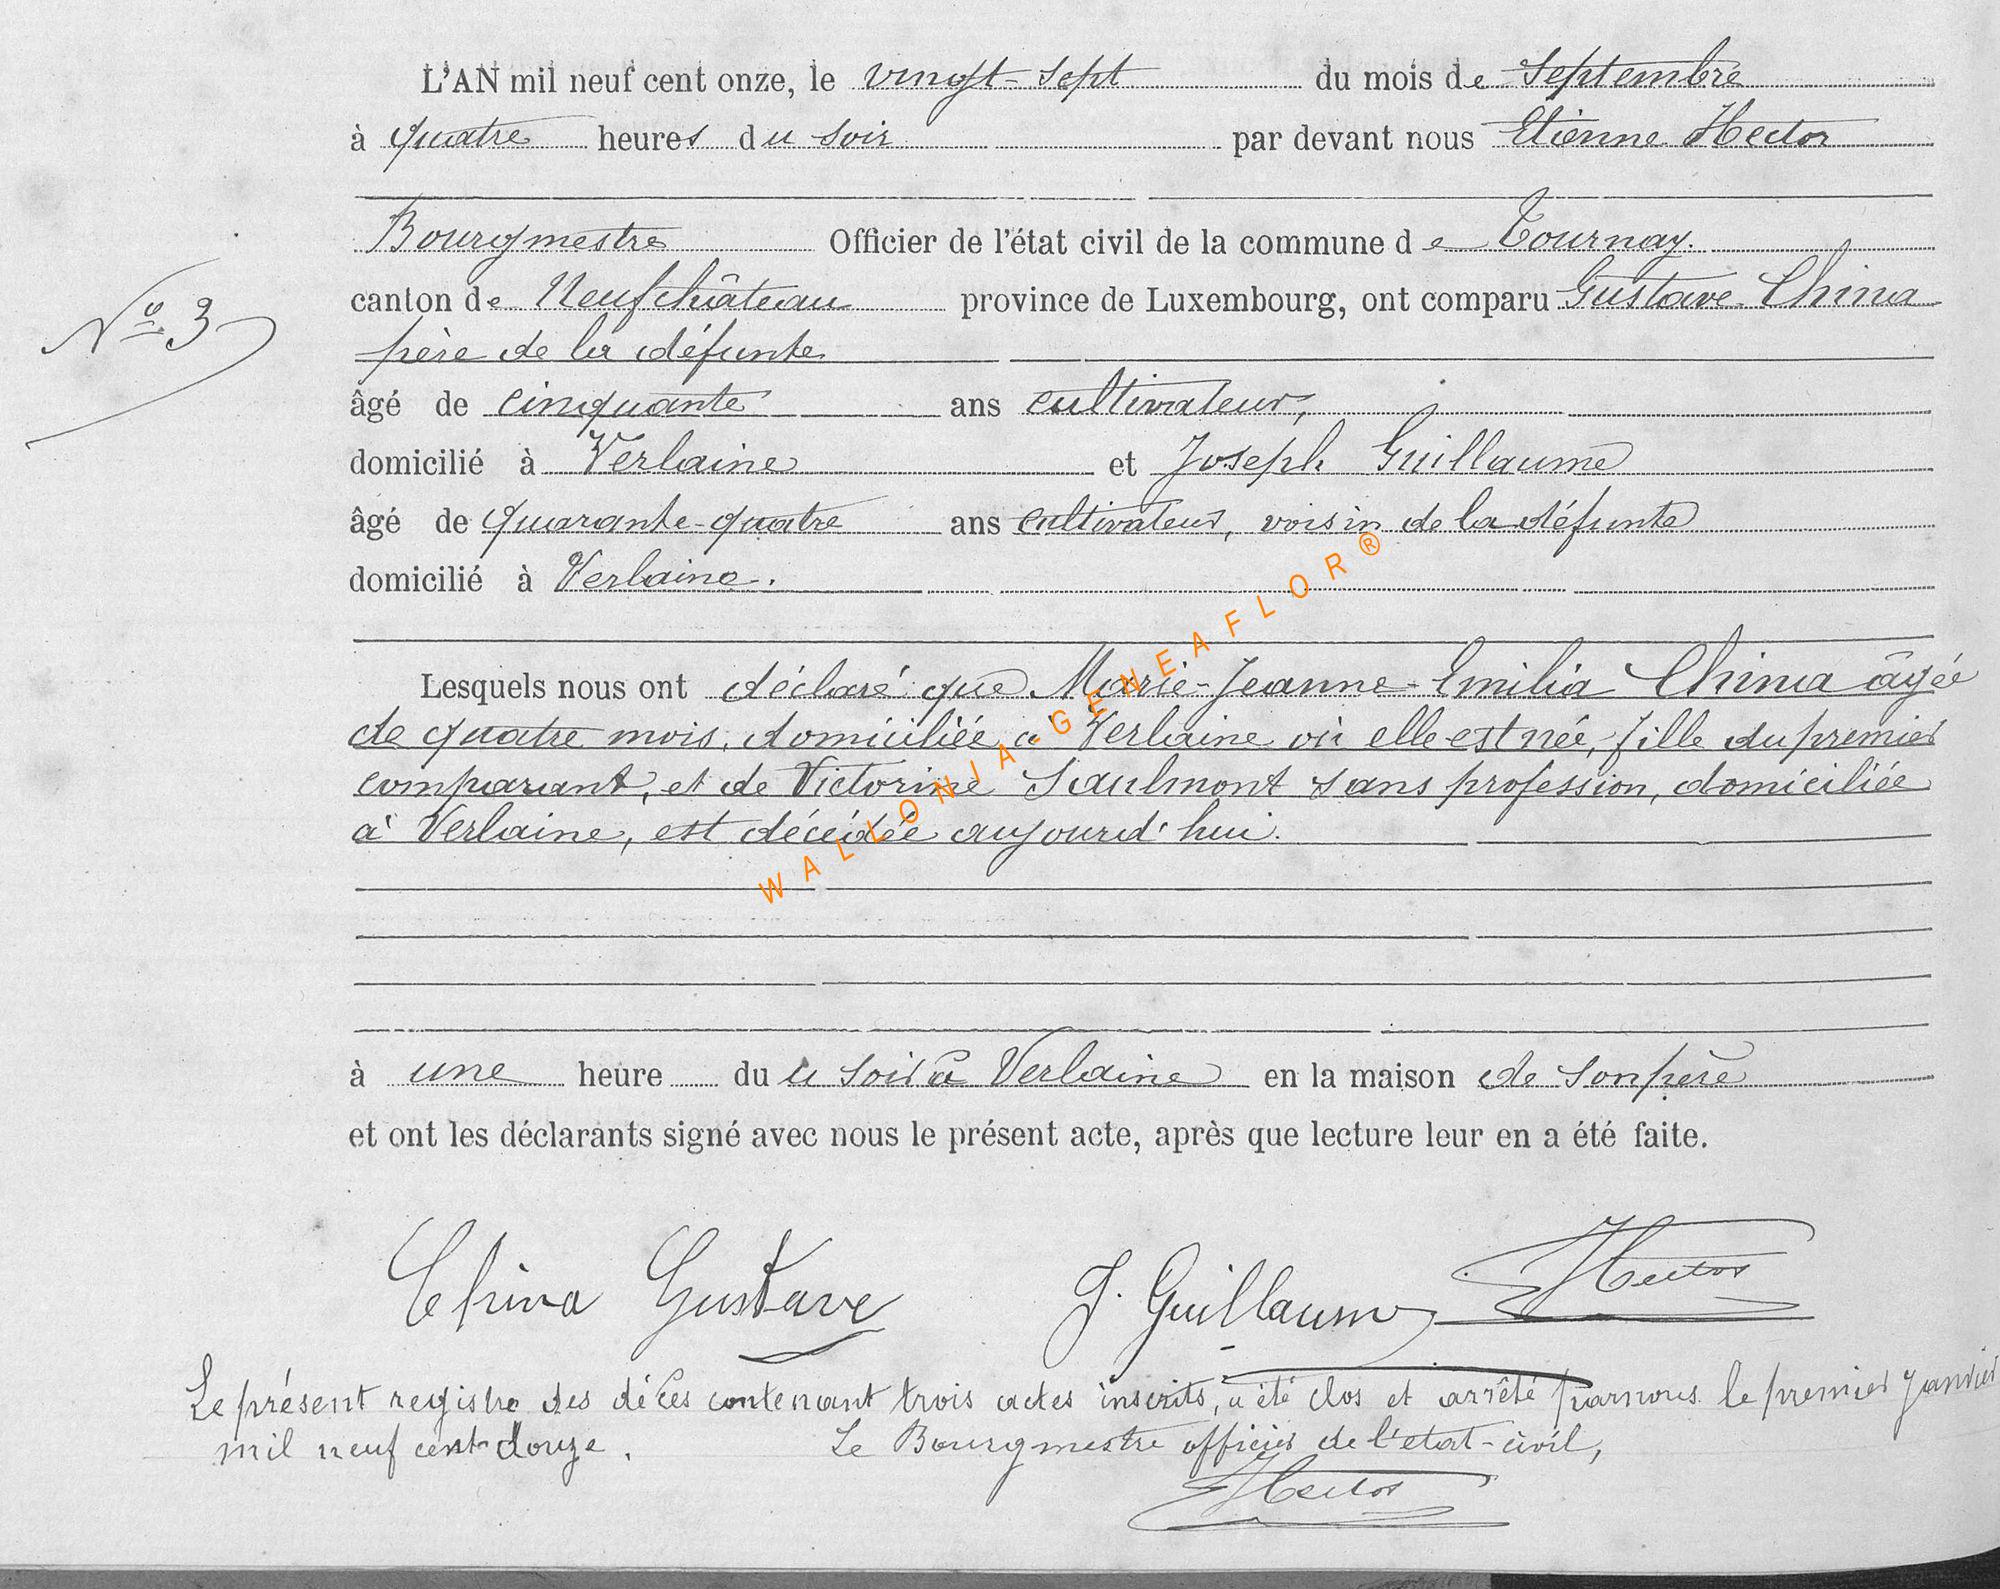 L'AN mil neuf cent onze, le vingt-sept du mois de Septembre
à quatre heures du soir par devant nous Etienne Hector
Bourgmestre Officier de l'état civil de la commune de Tournay.
canton de Neufchâteau province de Luxembourg, ont comparu Gustave China
N° 3
père de la défunte
âgé de cinquante ans cultivateur,
domicilié à Verlaine et Joseph Guillaume
âgé de quarante-quatre ans cultivateur, voisin de la défunte
domicilié à Verlaine.
Lesquels nous ont déclaré que Marie-Jeanne-Emilia China âgée
de quatre mois, domiciliée à Verlaine où elle est née, fille du premier
comparant, et de Victorine Saulmont sans profession, domiciliée
à Verlaine, est décédée aujourd'hui.
WALLONIA-GENEAFLOR®
à une heure du u soir à Verlaine en la maison de son père
et ont les déclarants signé avec nous le présent acte, après que lecture leur en a été faite.
China Gustave J. Guillaume Hector
Le présent registre des décès contenant trois actes inscrits, a été clos et arrêté par nous le premier janvier
mil neuf cent douze. Le Bourgmestre officier de l'état-civil,
Hector